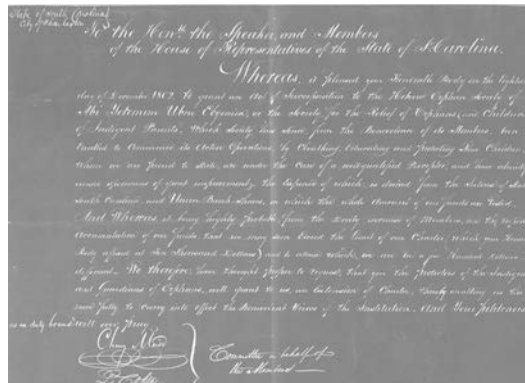 State of South Carolina
City of Charleston
To the Honble the Speaker and Members
of the House of Representatives of the State of So. Carolina.
Whereas, it pleased your Honorable Body on the
day of December 1802, to grant an Act of Incorporation to the Hebrew Orphan Society or
Abi Yetomim Ubne Ebyonim, or the Society for the Relief of Orphans, and Children
of Indigent Parents, Which Society has since, from the Benevolence of its Members, been
Enabled to Commence its Active Operations by Cloathing, Educating and Protecting Nine Children,
Whom we are proud to State, are under the Care of a well qualified Preceptor, and have already
given specimens of great improvement, the Expence of which, is derived from the Interest of
South Carolina, and Union Bank Shares, in which the whole Amount of our funds are Vested.
And Whereas it being highly Probable, from the
Accumulation of our funds that we may soon Exceed the limit of our Charter, which your Honorable
Body affixed at Ten Thousand Dollars, and to attain which, we are but a few Hundred Dollars
deficient. We therefore, have thought proper to request, that you the Protectors of the Indigent
and Guardians of Orphans, will grant to us, an Extension of Charter, thereby enabling us the
more fully to carry into effect the Benevolent Views of the Institution. And Your Petitioners
as in duty bound will ever Pray
Committee in behalf of
the Members